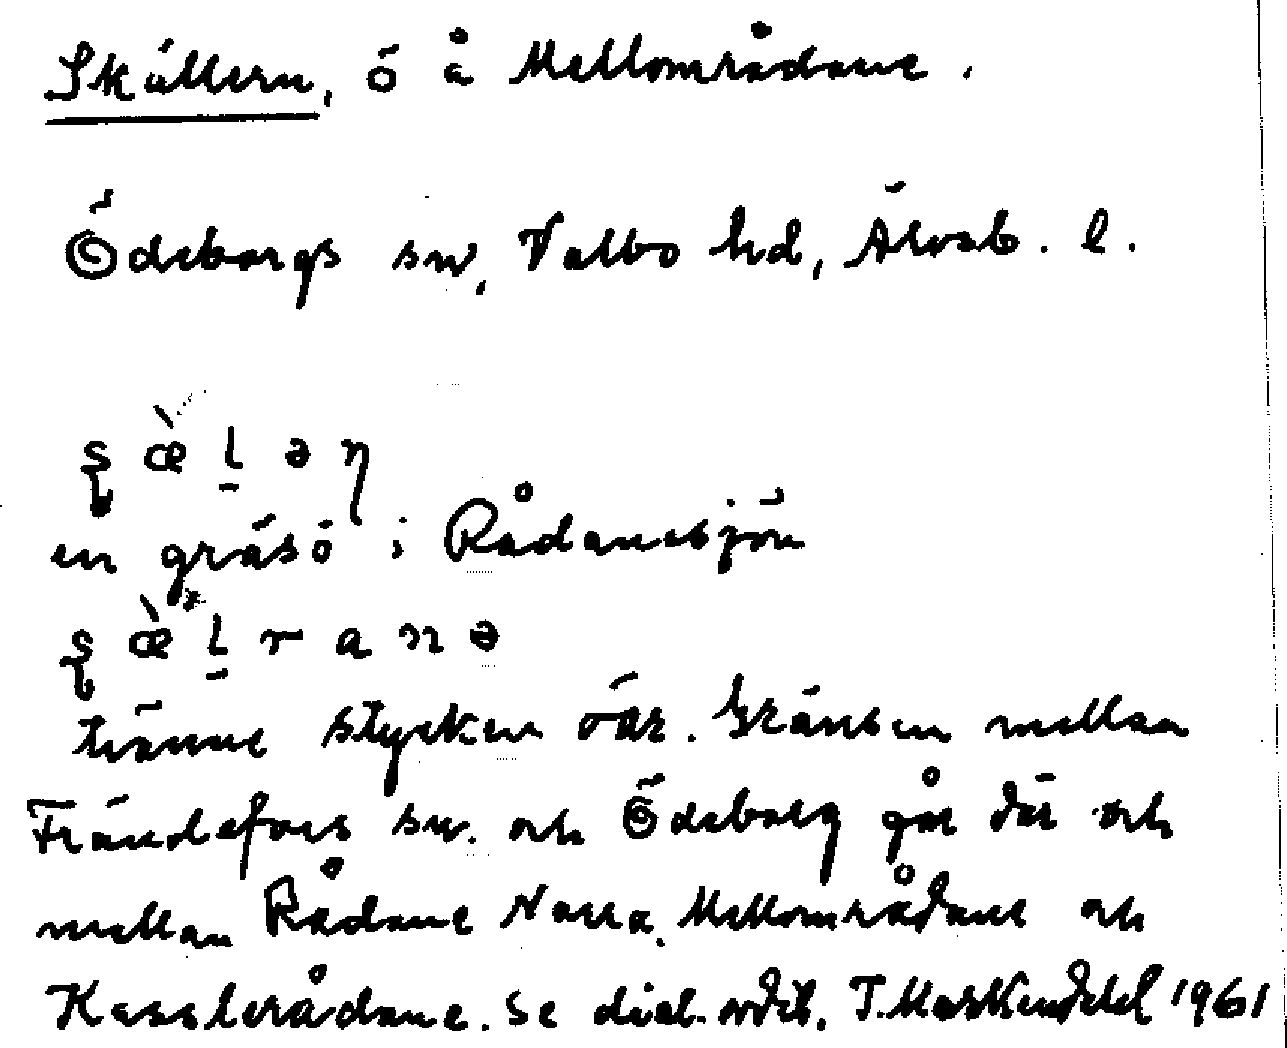 Skällern, ö å Mellområdane.
Ödeborgs sn, Valbo hd, Älvsb. l.
ʂ æ̀ l̠ ə ŋ
en gräsö i Rådanesjön
ʂ æ̀ l̠ r a n ə
tränne stycken öar. Gränsen mellan
Frändefors sn. och Ödeborg går där och
mellan Rådane Norra, Mellområdane och
Kasslerådane. Se dial. ordb. 1961